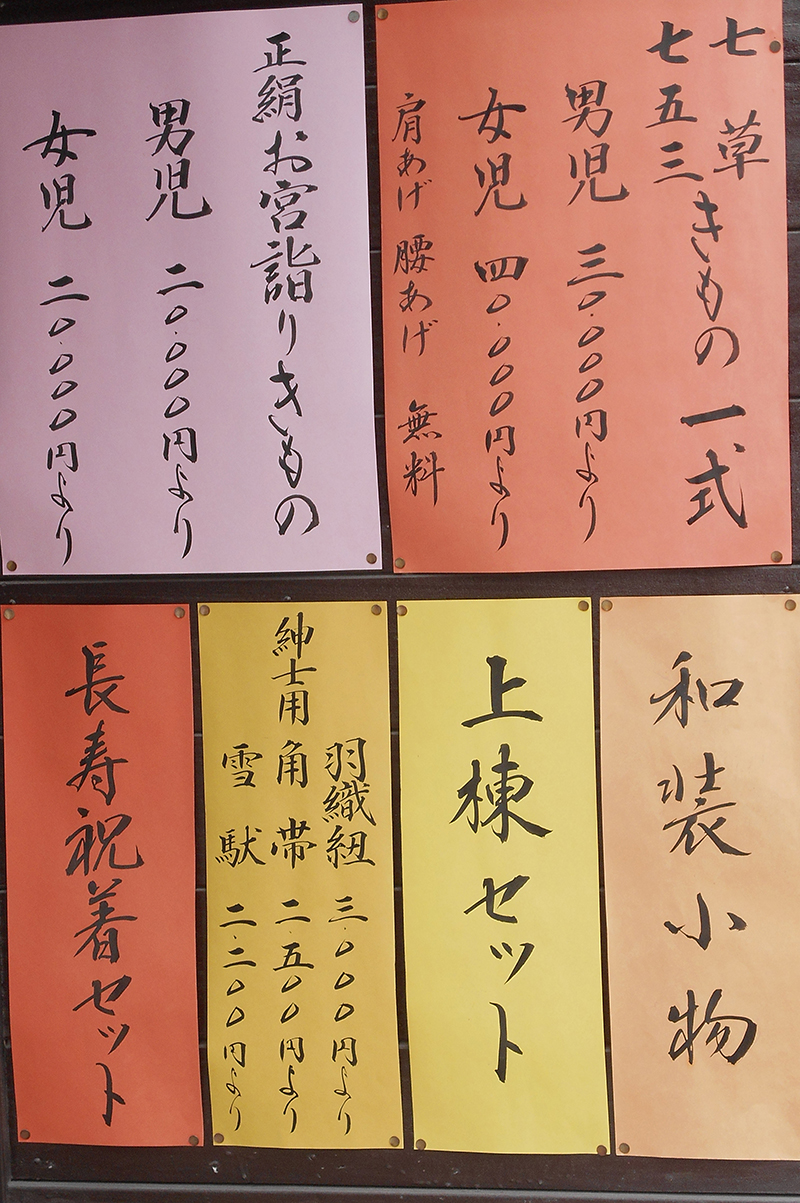 七草
七五三きもの一式
男児 三〇.〇〇〇円より
女児 四〇.〇〇〇円より
肩あげ 腰あげ 無料
正絹お宮詣りきもの
男児 二〇.〇〇〇円より
女児 二〇.〇〇〇円より
和装小物
上棟セット
紳士用
羽織紐 三.〇〇〇円より
角帯 二.五〇〇円より
雪駄 二.二〇〇円より
長寿祝着セット